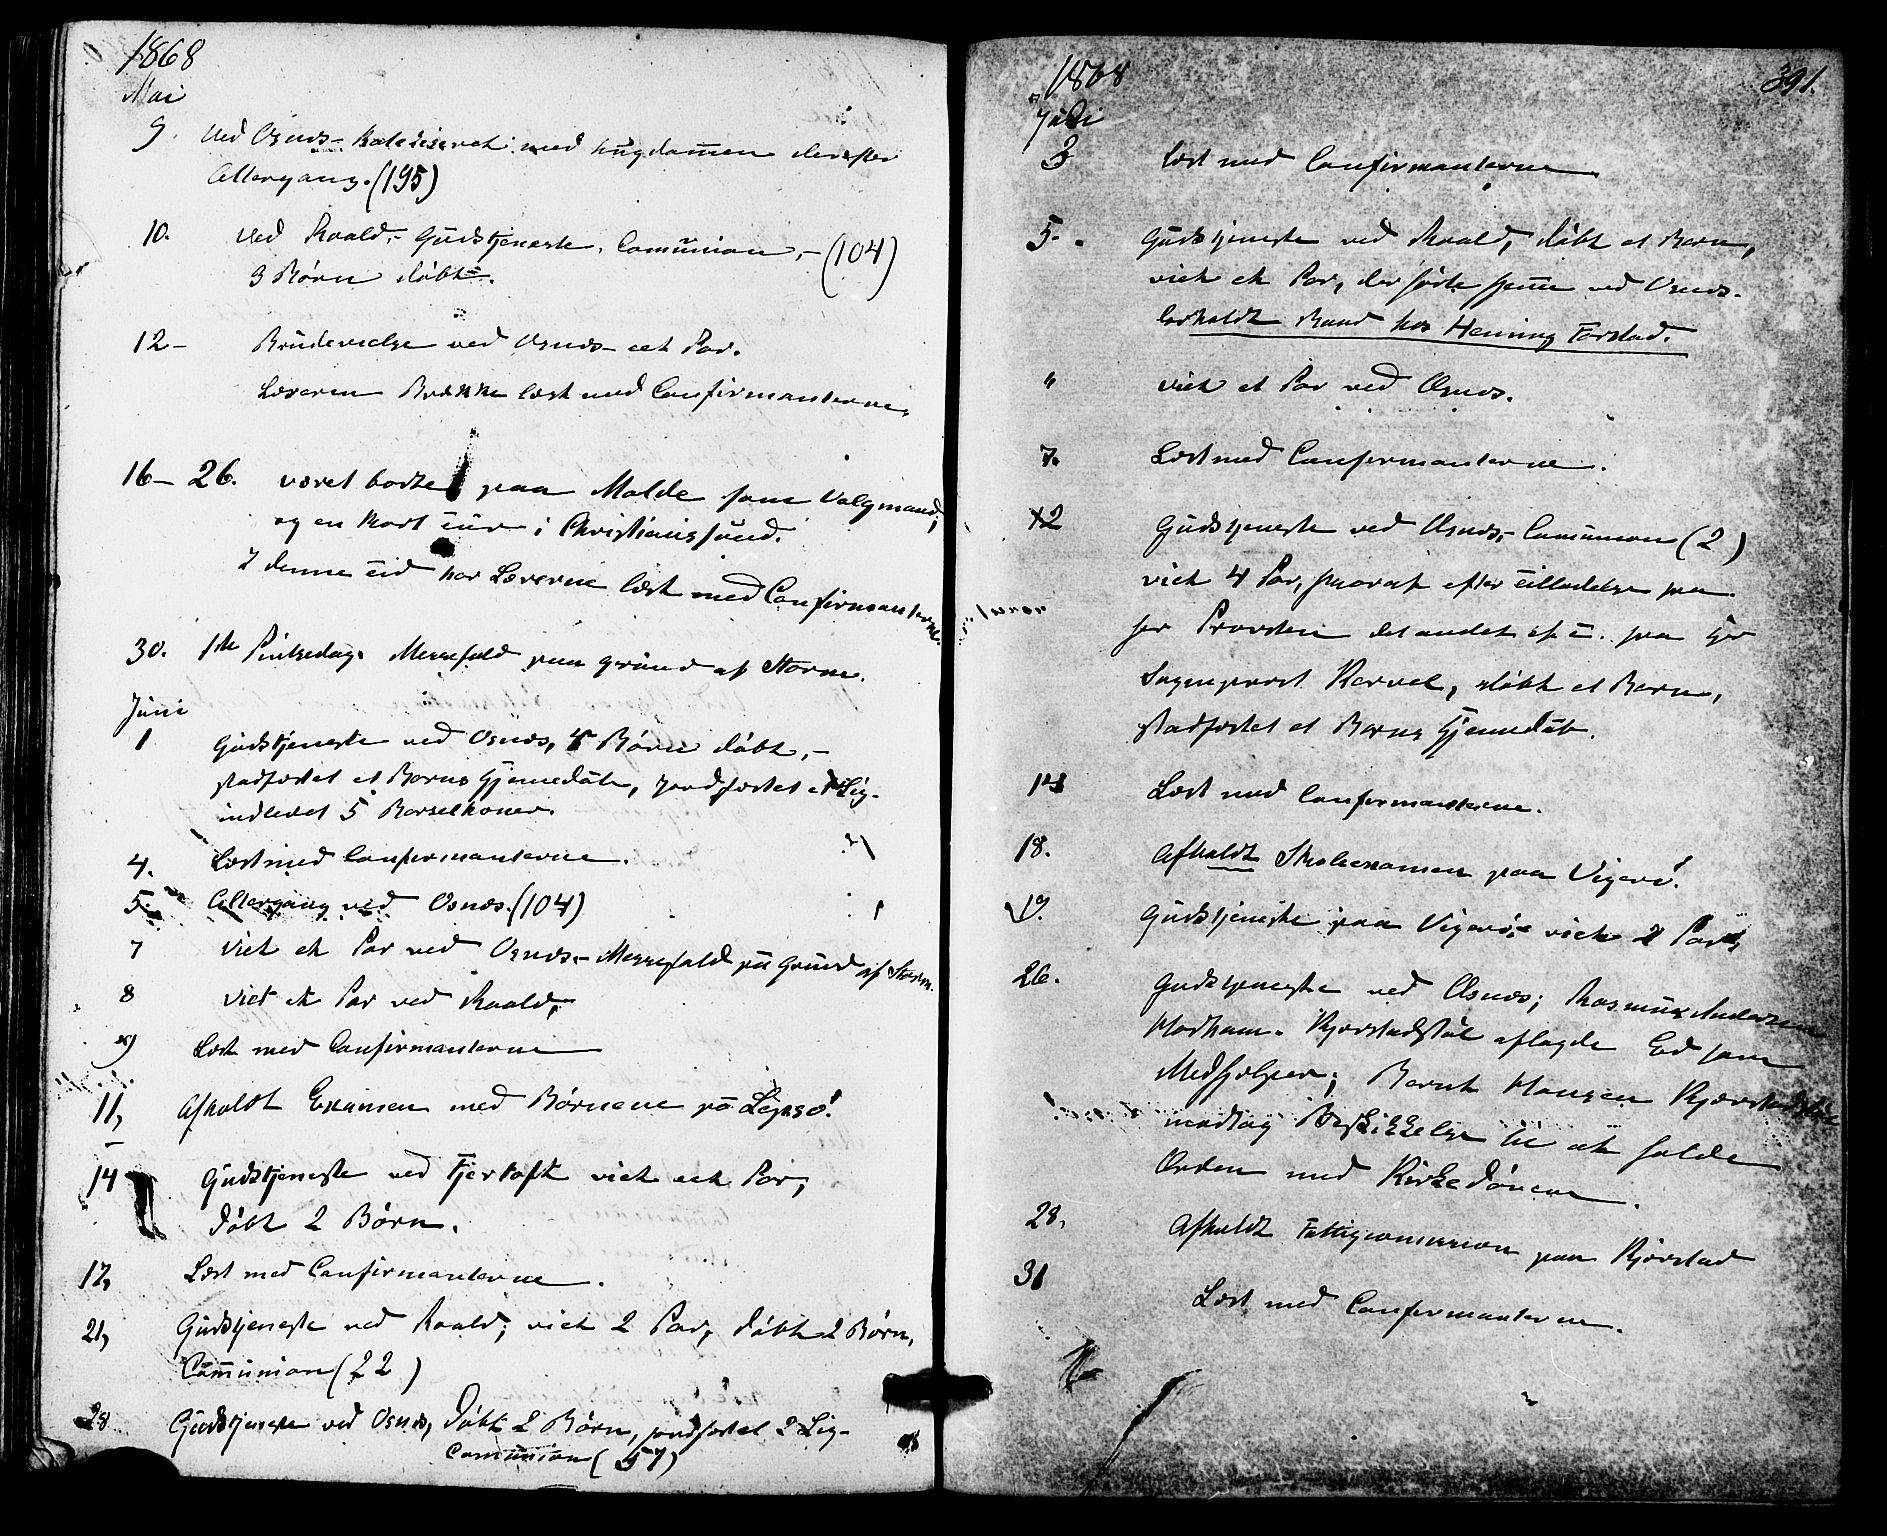 1868
Mai
9. Ved Osnæs - Katechiseret med Ungdommen derefter
Altergang. (195)
10. Ved Roald, - Gudstjeneste, Comūnion, - (104)
3 Børn døbte.
12 - Brudevielse ved Osnæs - eet Par.
Læreren Brække læst med Confirmanterne,
16 - 26. været borte paa Molde som Valgmand,
og en kort Tur i Christianssund.
I denne Tid har Lærerne læst med Confirmanterne.
30. 1ste Pintsedag. Messefald paa Grund af Storm.
Juni
1 Gudstjeneste ved Osnæs, 4 Børn døbt, -
stadfæstet et Barns Hjemmedåb, jordfæstet et Lig.
indledet 5 Barselkoner.
4. Læst med Confirmanterne.
5. Altergang ved Osnæs. (104)
7 Viet et Par ved Osnæs. - Messefald på Grund af Storm.
8 Viet et Par ved Roald,
9 Læst med Confirmanterne
11, Afholdt Examen med Børnene på Lepsø.
14 Gudstjeneste ved Fjertoft viet eet Par,
Døbt 2 Børn.
17, Læst med Confirmanterne.
21, Gudstjeneste ved Roald, viet 2 Par, døbt 2 Børn,
Comūnion (22)
28 Gudstjeneste ved Osnæs, Døbt 2 Børn, jordfæstet 2 Lig -
Comūnion (57)
1868 391.
Juli
3 Læst med Confirmanterne.
5. Gudstjeneste ved Roald, døbt et Barn,
viet et Par, derpaa hjem ved Osnæs.
Henning Farstad.
" viet et Par ved Osnæs.
7. Læst med Confirmanterne.
12 Gudstjeneste ved Osnæs, - Comūnion (2)
viet 4 Par, hvoraf efter Tilladelse fra
Hr Provsten det andet
Sogneprest døbt et Barn,
stadfæstet et Barns Hjemmedåb.
14 Læst med Confirmanterne.
18. Afholdt Skoleexamen paa Vigerø.
19. Gudstjeneste paa Vigerø, viet 2 Par,
26. Gudstjeneste ved Osnæs; Rasmus Andersen
Hardham - Kjerstadstøl aflagde Eed som
Medhjelper; Bernt Hansen Kjerstadstøl
modtog Beskikkelse til at holde
Orden med Kirkedørene.
28. Afholdt Fattigcomission paa Kjerstad
31 Læst med Confirmanterne.